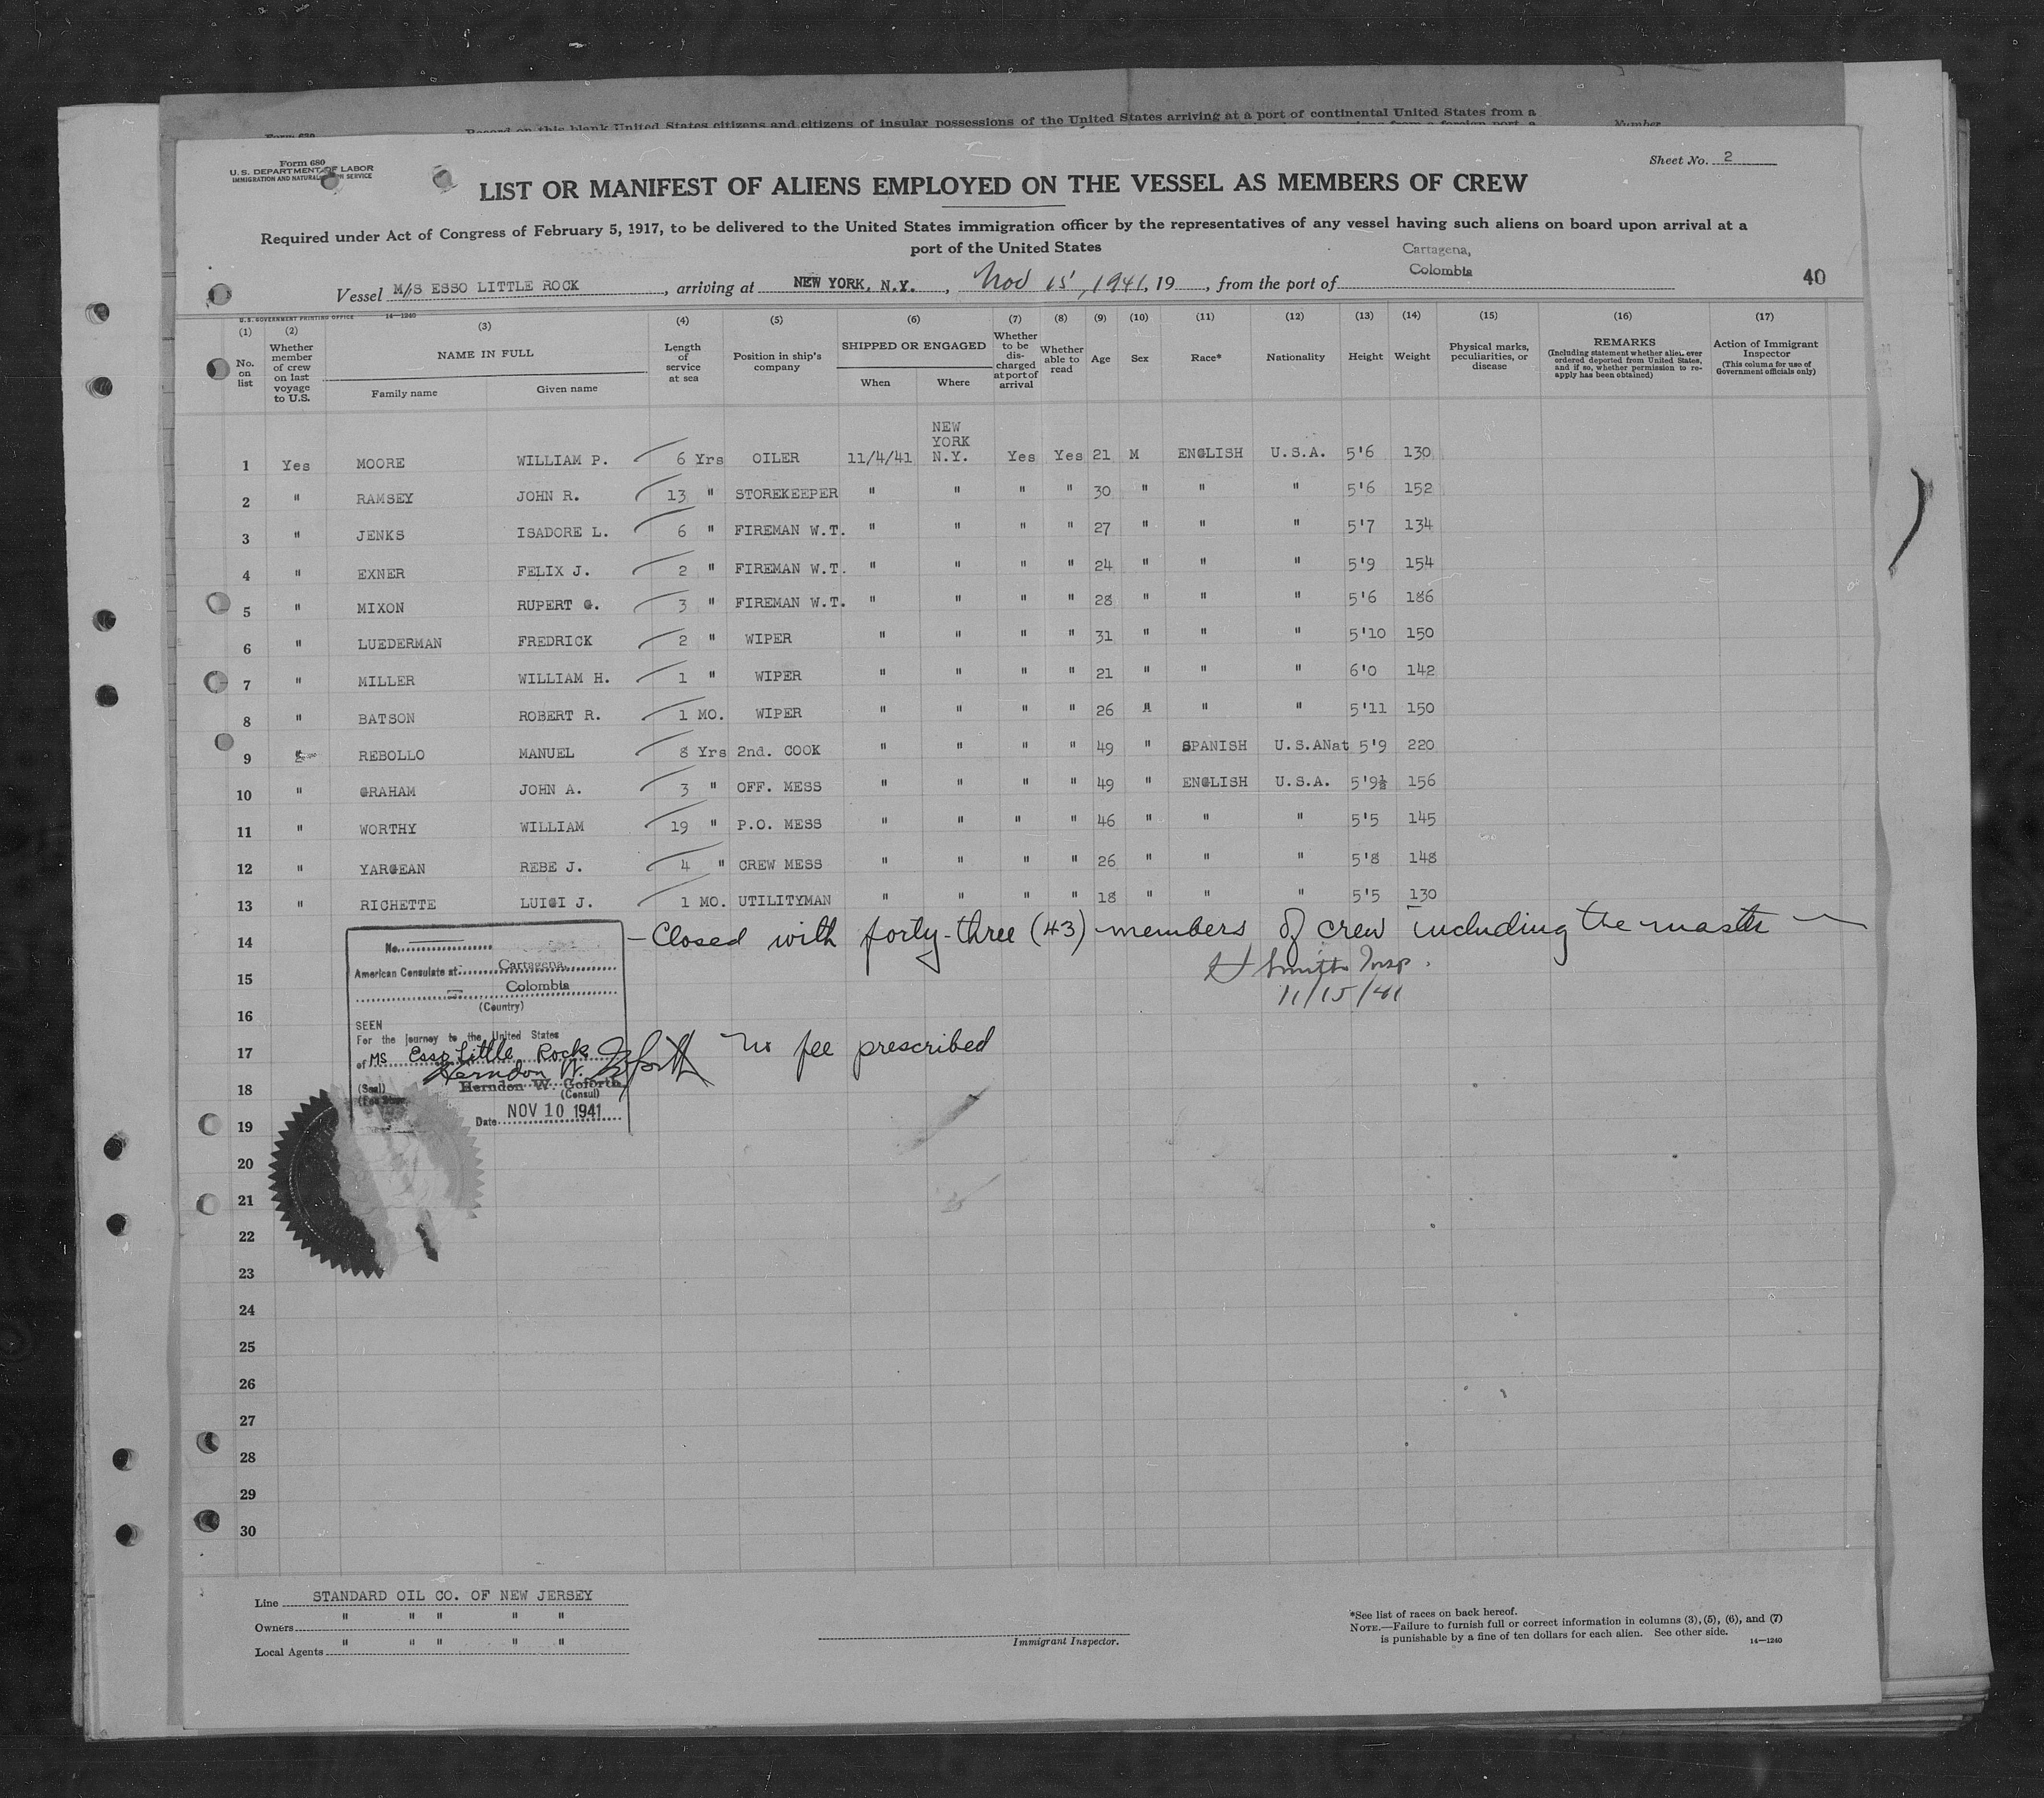 Record on this blank United States citizens and citizens of insular possessions of the United States arriving at a port of continental United States from a
Number
Form 680
U.S. DEPARTMENT OF LABOR
IMMIGRATION AND NATURALIZATION SERVICE
Sheet No. 2
LIST OR MANIFEST OF ALIENS EMPLOYED ON THE VESSEL AS MEMBERS OF CREW
Required under Act of Congress of February 5, 1917, to be delivered to the United States immigration officer by the representatives of any vessel having such aliens on board upon arrival at a
port of the United States
Cartagena,
Colombia
40
Vessel M/S ESSO LITTLE ROCK, arriving at NEW YORK, N.Y., Nov 15, 1941, 19, from the port of
U.S. GOVERNMENT PRINTING OFFICE 14—1240
(1) (2) (3) (4) (5) (6) (7) (8) (9) (10) (11) (12) (13) (14) (15) (16) (17)
No. on list
Whether member of crew on last voyage to U.S.
NAME IN FULL
Family name Given name
Length of service at sea
Position in ship's company
SHIPPED OR ENGAGED
When Where
Whether to be discharged at port of arrival
Whether able to read
Age
Sex
Race*
Nationality
Height
Weight
Physical marks, peculiarities, or disease
REMARKS
(Including statement whether alien ever ordered deported from United States, and if so, whether permission to reapply has been obtained)
Action of Immigrant Inspector
(This column for use of Government officials only)
1 Yes MOORE WILLIAM P. 6 Yrs OILER 11/4/41 NEW YORK N.Y. Yes Yes 21 M ENGLISH U.S.A. 5'6 130
2 " RAMSEY JOHN R. 13 " STOREKEEPER " " " " 30 " " " 5'6 152
3 " JENKS ISADORE L. 6 " FIREMAN W.T. " " " " 27 " " " 5'7 134
4 " EXNER FELIX J. 2 " FIREMAN W.T. " " " " 24 " " " 5'9 154
5 " MIXON RUPERT G. 3 " FIREMAN W.T. " " " " 28 " " " 5'6 186
6 " LUEDERMAN FREDRICK 2 " WIPER " " " " 31 " " " 5'10 150
7 " MILLER WILLIAM H. 1 " WIPER " " " " 21 " " " 6'0 142
8 " BATSON ROBERT R. 1 MO. WIPER " " " " 26 " " " 5'11 150
9 REBOLLO MANUEL 8 Yrs 2nd. COOK " " " " 49 " SPANISH U.S.ANat 5'9 220
10 " GRAHAM JOHN A. 3 " OFF. MESS " " " " 49 " ENGLISH U.S.A. 5'9½ 156
11 " WORTHY WILLIAM 19 " P.O. MESS " " " " 46 " " " 5'5 145
12 " YARGEAN REBE J. 4 " CREW MESS " " " " 26 " " " 5'8 148
13 " RICHETTE LUIGI J. 1 MO. UTILITYMAN " " " " 18 " " " 5'5 130
14 — Closed with forty-three (43) members of crew including the master —
H Smith Insp.
11/15/41
15
16
17
18
19
20
21
22
23
24
25
26
27
28
29
30
No.
American Consulate at Cartagena,
Colombia
(Country)
SEEN
For the journey to the United States
of MS Esso Little Rock
Herndon W. Goforth
Herndon W. Goforth
(Seal) (Consul)
Date NOV 10 1941
No fee prescribed
Line STANDARD OIL CO. OF NEW JERSEY
Owners " " " " "
Local Agents " " " " "
Immigrant Inspector.
*See list of races on back hereof.
NOTE.—Failure to furnish full or correct information in columns (3), (5), (6), and (7)
is punishable by a fine of ten dollars for each alien. See other side.
14—1240